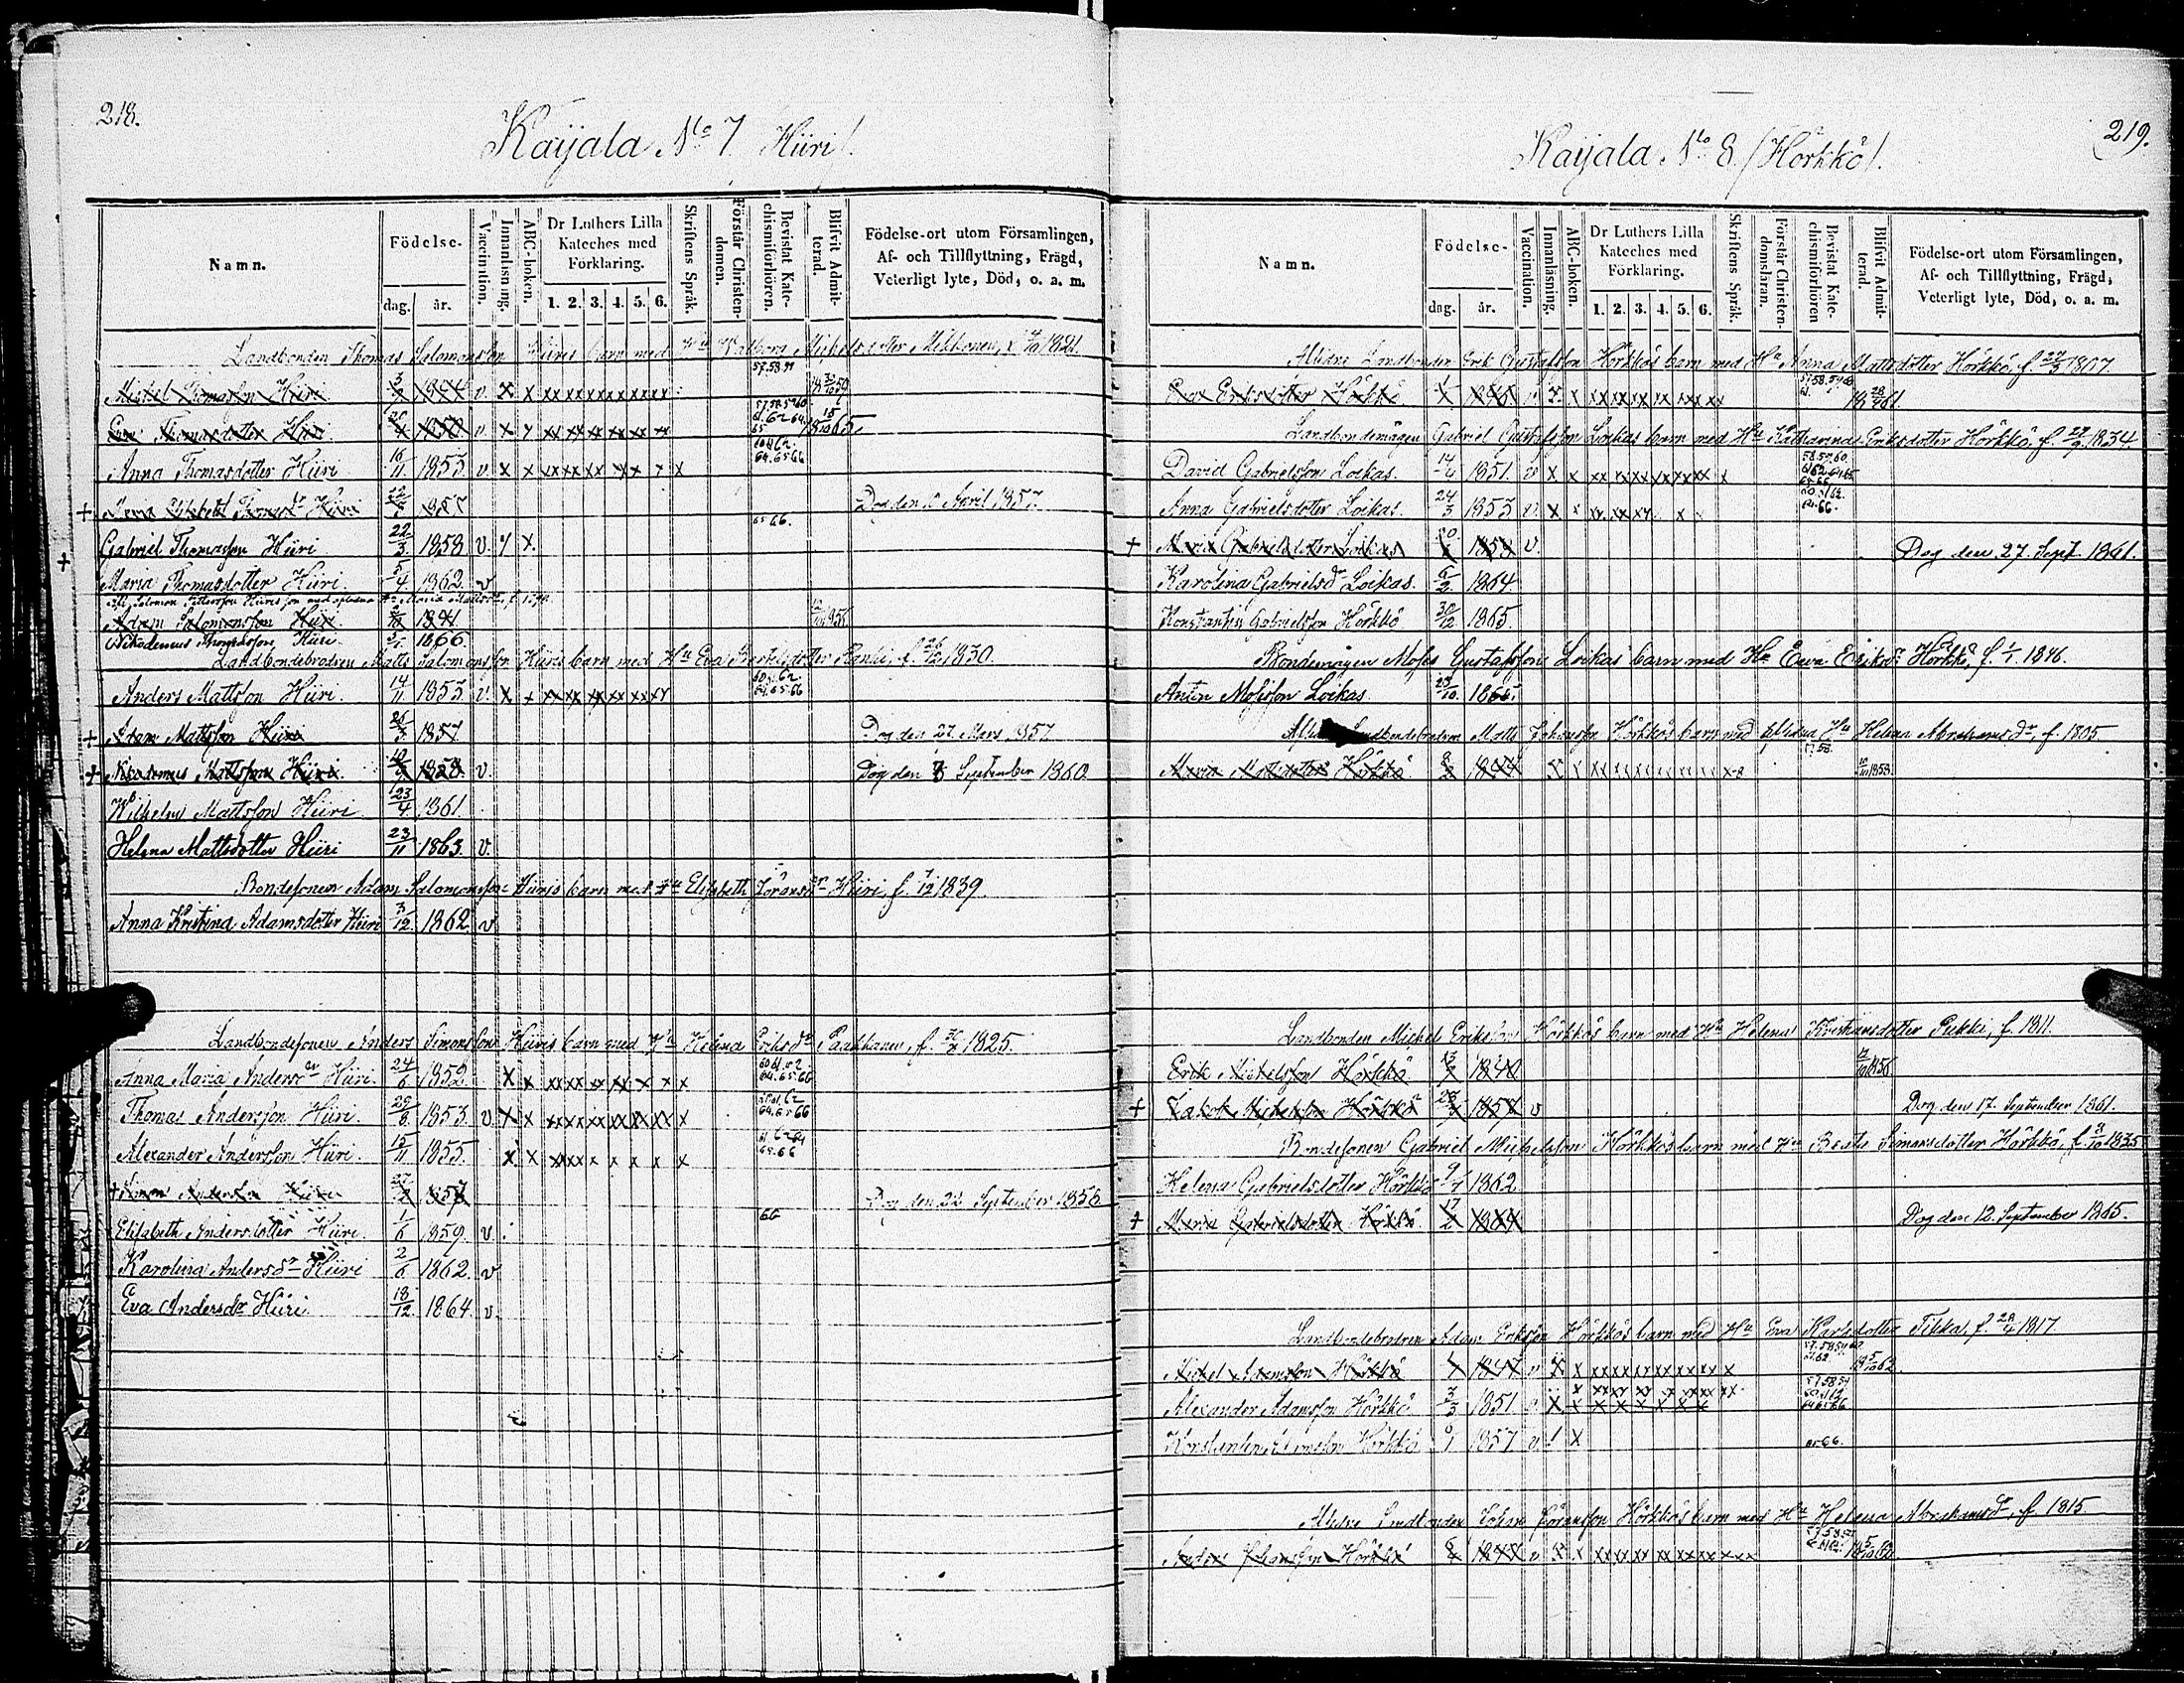 218.
Kaijala No 7. Hüri/.
Namn.
Födelse-
dag.
år.
Vaccination.
Innanläsning.
ABC-boken.
Dr Luthers Lilla
Kateches med
Förklaring.
1. 2. 3. 4. 5. 6.
Skriftens Språk.
Förstår Christen-
domen.
Bevistat Kate-
chismiförhören.
Blifvit Admit-
terad.
Födelse-ort utom Församlingen,
Af- och Tillflyttning, Frägd,
Veterligt lyte, Död, o. a. m.
Landbonden Thomas Salomonsson Hüris barn med Hu Walborg Michelsdotter Mikkonen, 1821.
Michel Thomasson Hüri 1844 v. x x xx xx xx xx xx xx
Eva Thomasdotter Hüri 1850 v. x x xx xx xx xx xx xx
Anna Thomasdotter Hüri 16/11 1853 v. x x xx xx xx xx x x 64.65 66
+ Maria Elisabeth Thomasdr Hüri 1857 Dog den April 1857.
Gabriel Thomasson Hüri 22/3 1858 v. x. 65 66.
Maria Thomasdotter Hüri 5/4 1862 v
Adam Salomonsson Hüri 1841
Nikodemus Thomasson Hüri. 1866.
Landbondebrodren Matts Salomonsson Hüris barn med Hu Eva 26/12 1830.
Anders Mattsson Hüri. 14/11 1853 v. x x xx xx xx xx xx xx 64.65.66
+ Adam Mattsson Hüri 1857 Dog den 27 Mars 1857
+ Nicodemus Mattsson Hüri 1858. v. Dog den 8 September 1860.
Wilhelm Mattsson Hüri 23/4 1861.
Helena Mattsdotter Hüri 23/11 1863. v.
Bondesonen Adam Salomonsson Hüris barn med Hu Elisabeth Göransdr Hüri, f. 7/12 1839.
Anna Kristina Adamsdotter Hüri 3/12 1862 v
Landbondesonen Anders Simonsson Hüris barn med Hu Helena Eriksdr Paakkanen, f. 1825.
Anna Maria Andersdr Hüri. 24/6 1852. x x xx xx xx xx x x x 64.65.66
Thomas Andersson Hüri. 1853. v. x x xx xx xx xx xx xx x 64.65 66
Alexander Andersson Hüri. 15/11 1855. x x xx xx x x x x x 65.66
+ Simon Andersson Hüri 1857 Dog den 22 September 1858
Elisabeth Andersdotter Hüri. 1/6 1859. v. 66
Karolina Andersdr Hüri 2/6 1862. v.
Eva Andersdr Hüri. 18/12 1864 v.
219.
Kaijala No 8. /Hörkkö/.
Namn.
Födelse-
dag.
år.
Vaccination.
Innanläsning.
ABC-boken.
Dr Luthers Lilla
Kateches med
Förklaring.
1. 2. 3. 4. 5. 6.
Skriftens Språk.
Förstår Christen-
domsläran.
Bevistat Kate-
chismiförhören
Blifvit Admit-
terad.
Födelse-ort utom Församlingen,
Af- och Tillflyttning, Frägd,
Veterligt lyte, Död, o. a. m.
Aflidne Landbonden Erik Gustafsson Hörkkös barn med Hu Anna Mattsdotter Hörkkö, f. 1807.
Eva Eriksdotter Hörkkö 1846
Landbondemågen Gabriel Gustafsson Loikas barn med Hu Katharina Eriksdotter Hörkkö, f. 1834
David Gabrielsson Loikas. 14/4 1851. v x x xx xx xx xx xx xx x
Anna Gabrielsdotter Loikas. 24/3 1853 v. x x
+ Maria Gabrielsdotter Loikas 1858 v. Dog den 27 Sept 1861.
Karolina Gabrielsdr Loikas. 6/2 1864.
Konstantin Gabrielsson Hörkkö 30/12 1865.
Bondemågen Moses Gustafsson Loikas barn med Hu Eva Eriksdr Hörkkö, f. 1/1. 1846.
Antin Mosisson Loikas. 23/10. 1865.
Landbondebrodren Matts Johansson Hörkkös barn med aflidna Hu Helena Abrahamsdr, f. 1805
Maria Mattsdotter Hörkkö 1844
Landbonden Michel Eriksson Hörkkös barn med Hu Helena Kristiansdotter Pukki, f. 1811.
Erik Michelsson Hörkkö 1840 1856
+ Jakob Michelsson Hörkkö 1857 v Dog den 17. September 1861.
Bondesonen Gabriel Michelsson Hörkkös barn med Hu Beata Simonsdotter Hörkkö, f. 1835
Helena Gabrielsdotter Hörkkö 9/1 1862
+ Maria Gabrielsdotter Hörkkö 17/2 1864 Dog den 12. September 1865.
Landbondebrodren Adam Eriksson Hörkkös barn med Hu Eva Karlsdotter Tikka, f. 1817.
Michel Adamsson Hörkkö 1847 v x x xx xx xx xx xx xx x
Alexander Adamsson Hörkkö 3/3 1851
Konstantin Adamsson Hörkkö 1857 v x 65 66.
Aflidne Landbonden Johan Göransson Hörkkös barn med Hu Helena Abrahamsdr, f. 1815
Anders Johansson Hörkkö